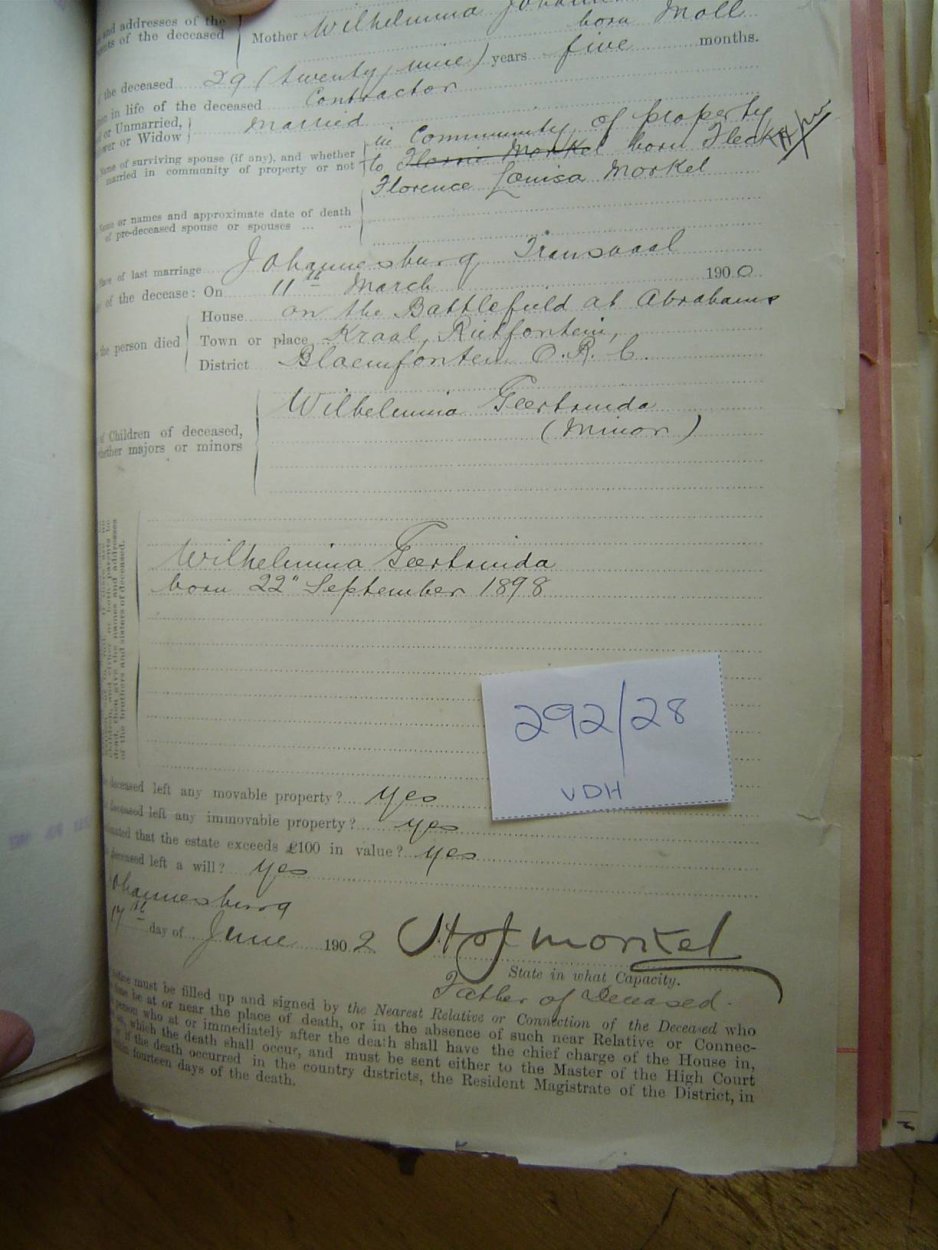 and addresses of the
of the deceased Mother Wilhelmina
born Moll
the deceased 29 (twenty nine) years five months.
in life of the deceased Contractor
or Unmarried,
or Widow Married
Name of surviving spouse (if any), and whether
married in community of property or not
in Community of property
to Morkel born
Florence Louisa Morkel
or names and approximate date of death
of pre-deceased spouse or spouses ... ...
of last marriage Johannesburg Transvaal
of the decease: On 11th March 1900
House on the Battlefield at Abrahams
the person died Town or place Kraal, Rietfontein,
District Bloemfontein O.R.C.
Wilhelmina Geertruida
(Minor)
of Children of deceased,
whether majors or minors
Wilhelmina Geertruida
born 22" September 1898
of the brothers and sisters of deceased.
292/28
VDH
deceased left any movable property? yes
deceased left any immovable property? yes
that the estate exceeds £100 in value? yes
deceased left a will? yes
Johannesburg
17th day of June 1902 Morkel
State in what Capacity.
Father of Deceased.
must be filled up and signed by the Nearest Relative or Connection of the Deceased who
be at or near the place of death, or in the absence of such near Relative or Connec-
person who at or immediately after the death shall have the chief charge of the House in,
which the death shall occur, and must be sent either to the Master of the High Court
if the death occurred in the country districts, the Resident Magistrate of the District, in
fourteen days of the death.